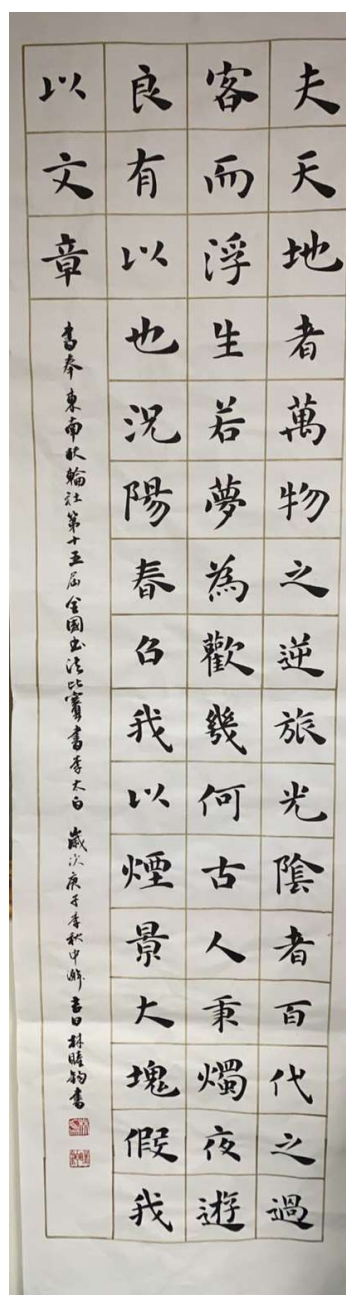 夫天地者萬物之逆旅光陰者百代之過
客而浮生若夢為歡幾何古人秉燭夜遊
良有以也況陽春召我以煙景大塊假我
以文章
書奉東南扶輪社第十五屆全國書法比賽書李太白 歲次庚子季秋中澣吉日林 鈞書